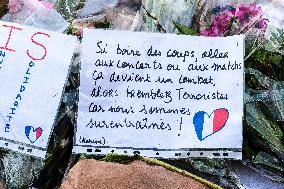 IS
Solidarité
Si boire des coups, aller
aux concerts ou aux matchs
ça devient un combat,
alors tremblez Terroristes
car nous sommes
surentraînés !
Karine